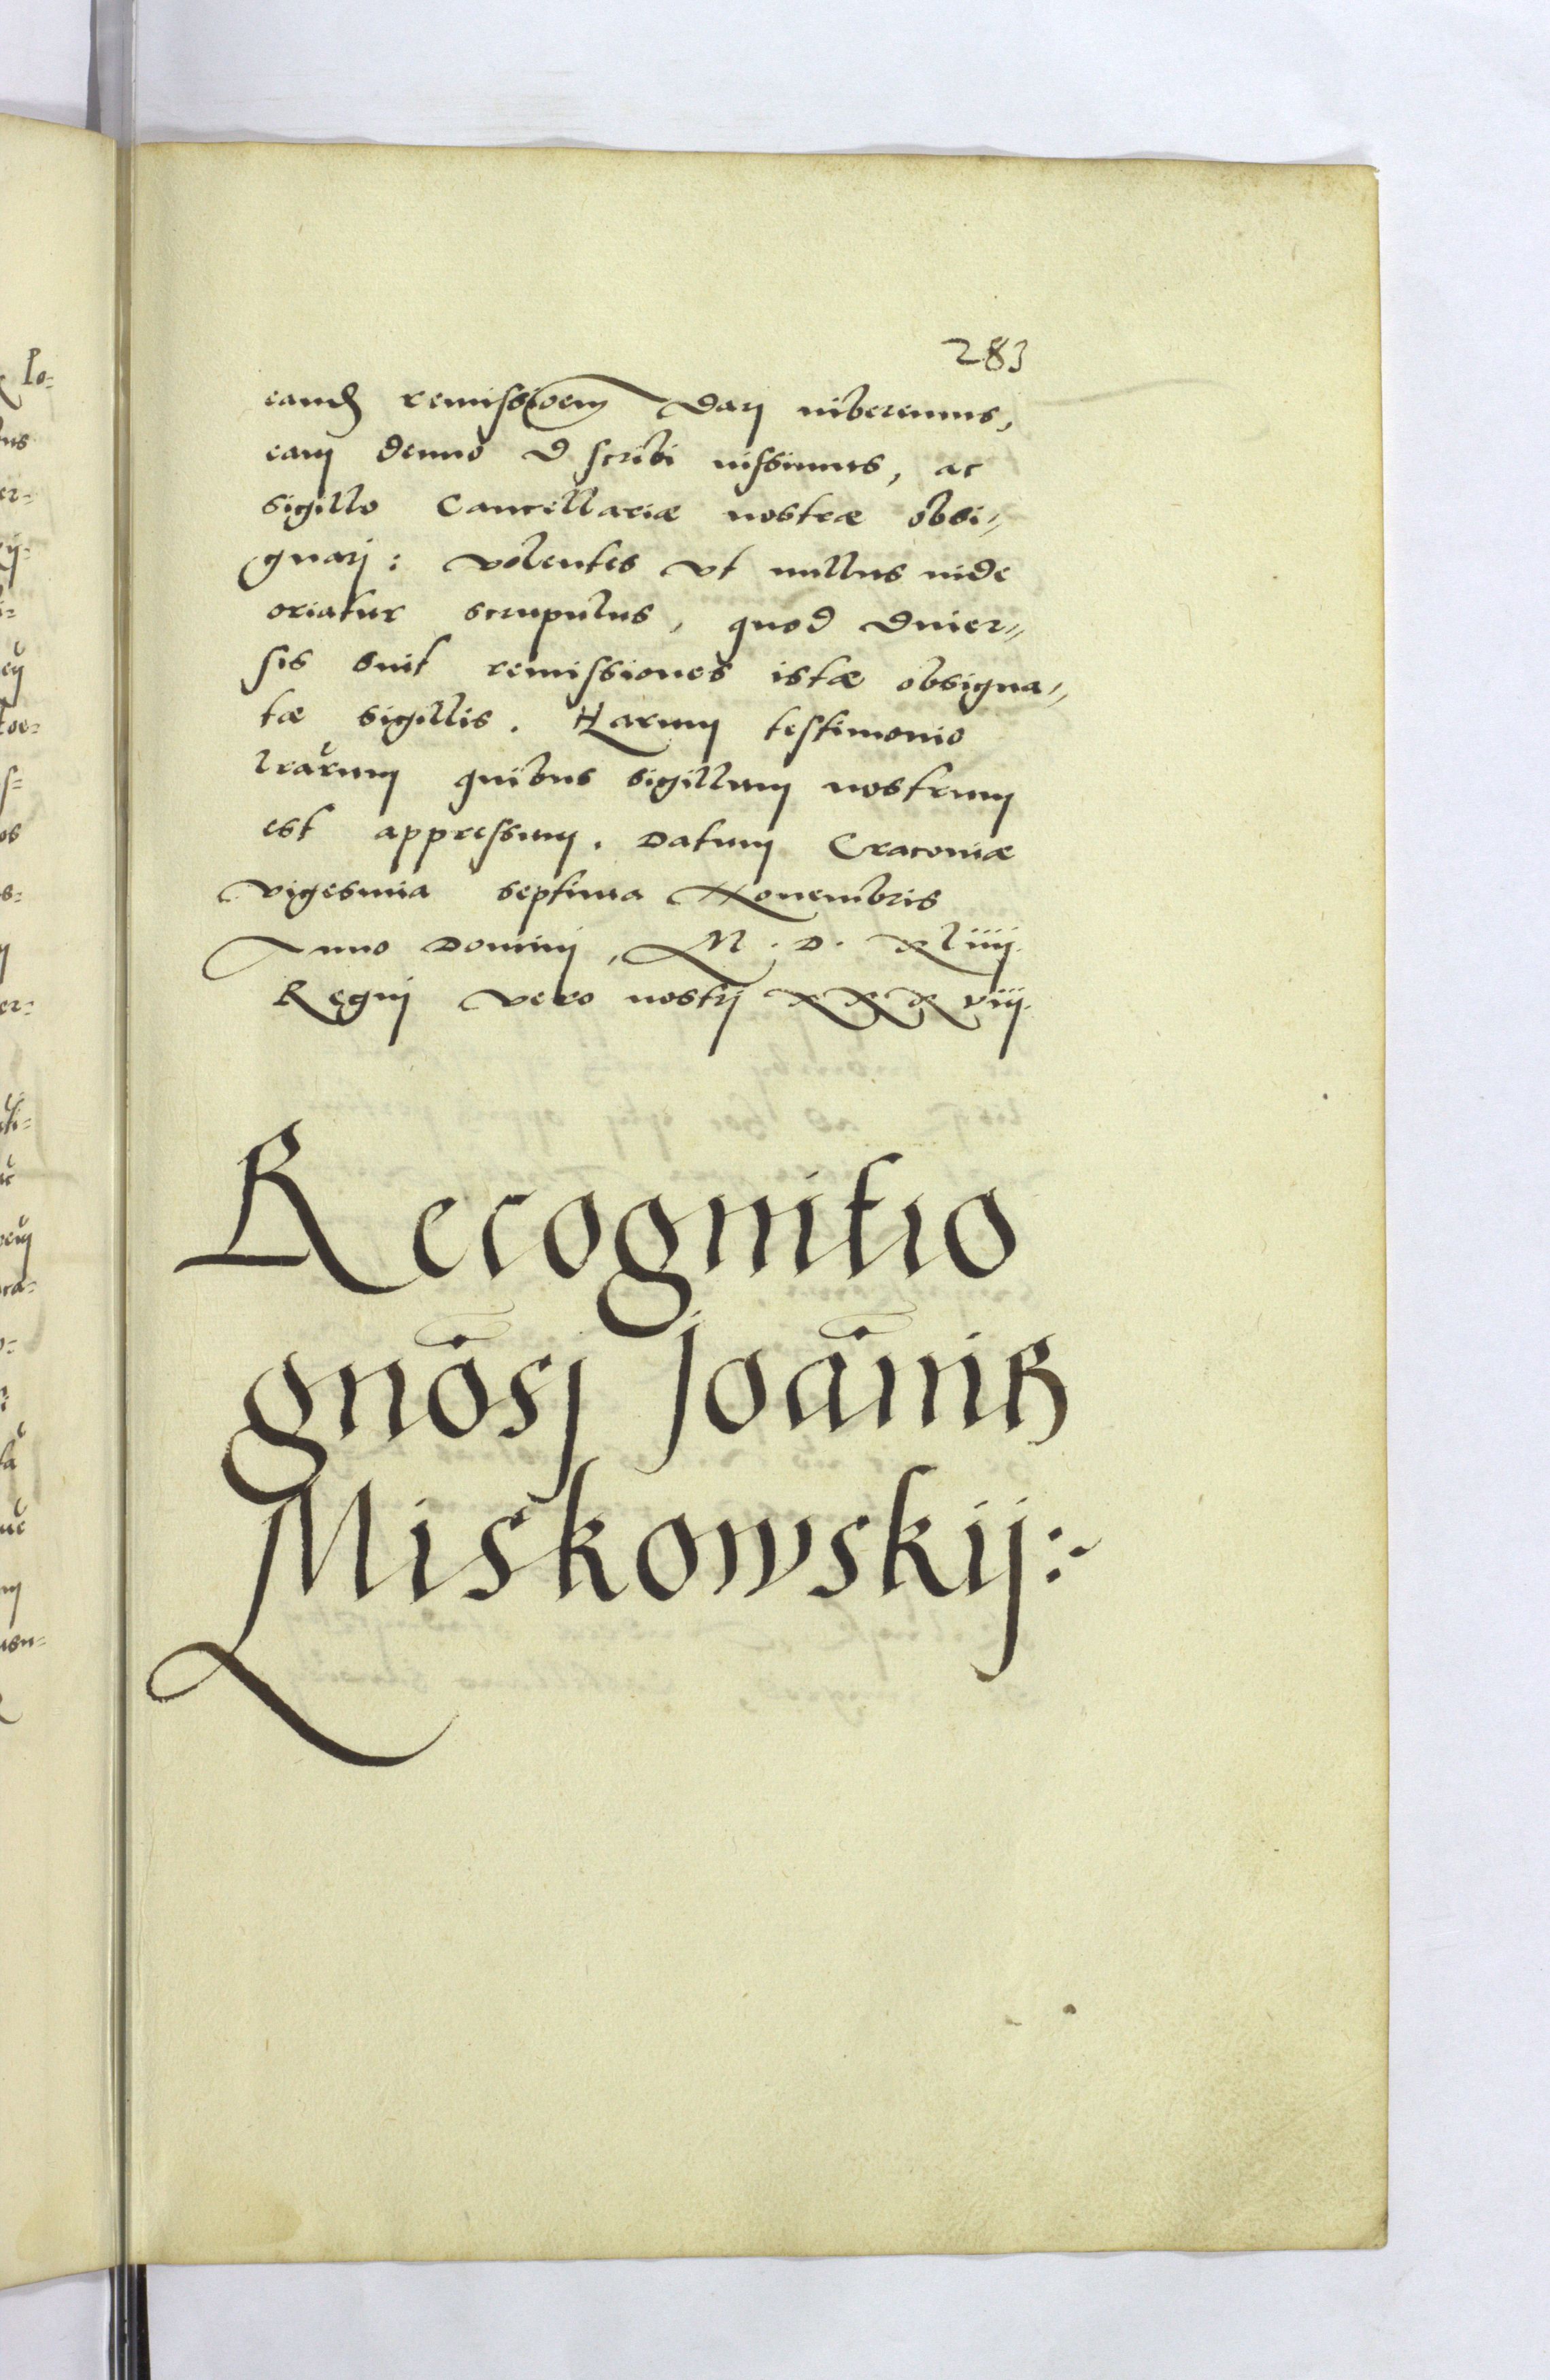 283
eand remissioem darj iuberemus,
eam denuo d scribi iussimus, ac
sigillo Cancellariæ nostræ obsi⸗
gnarj: volentes vt nullus inde
oriatur scrupulus, quod diuer⸗
sis sint remissiones istæ obsigna⸗
tæ sigillis. Harum testimonio
lrarum quibus sigillum nostrum
est appressum. Datum Cracouiæ
vigesima septima Nouembris
Anno Domini, M. D. xliiij.
Regnj vero nostrj xxxviij.
Recognitio
gnōsj Joānnis
Miskowskij:~